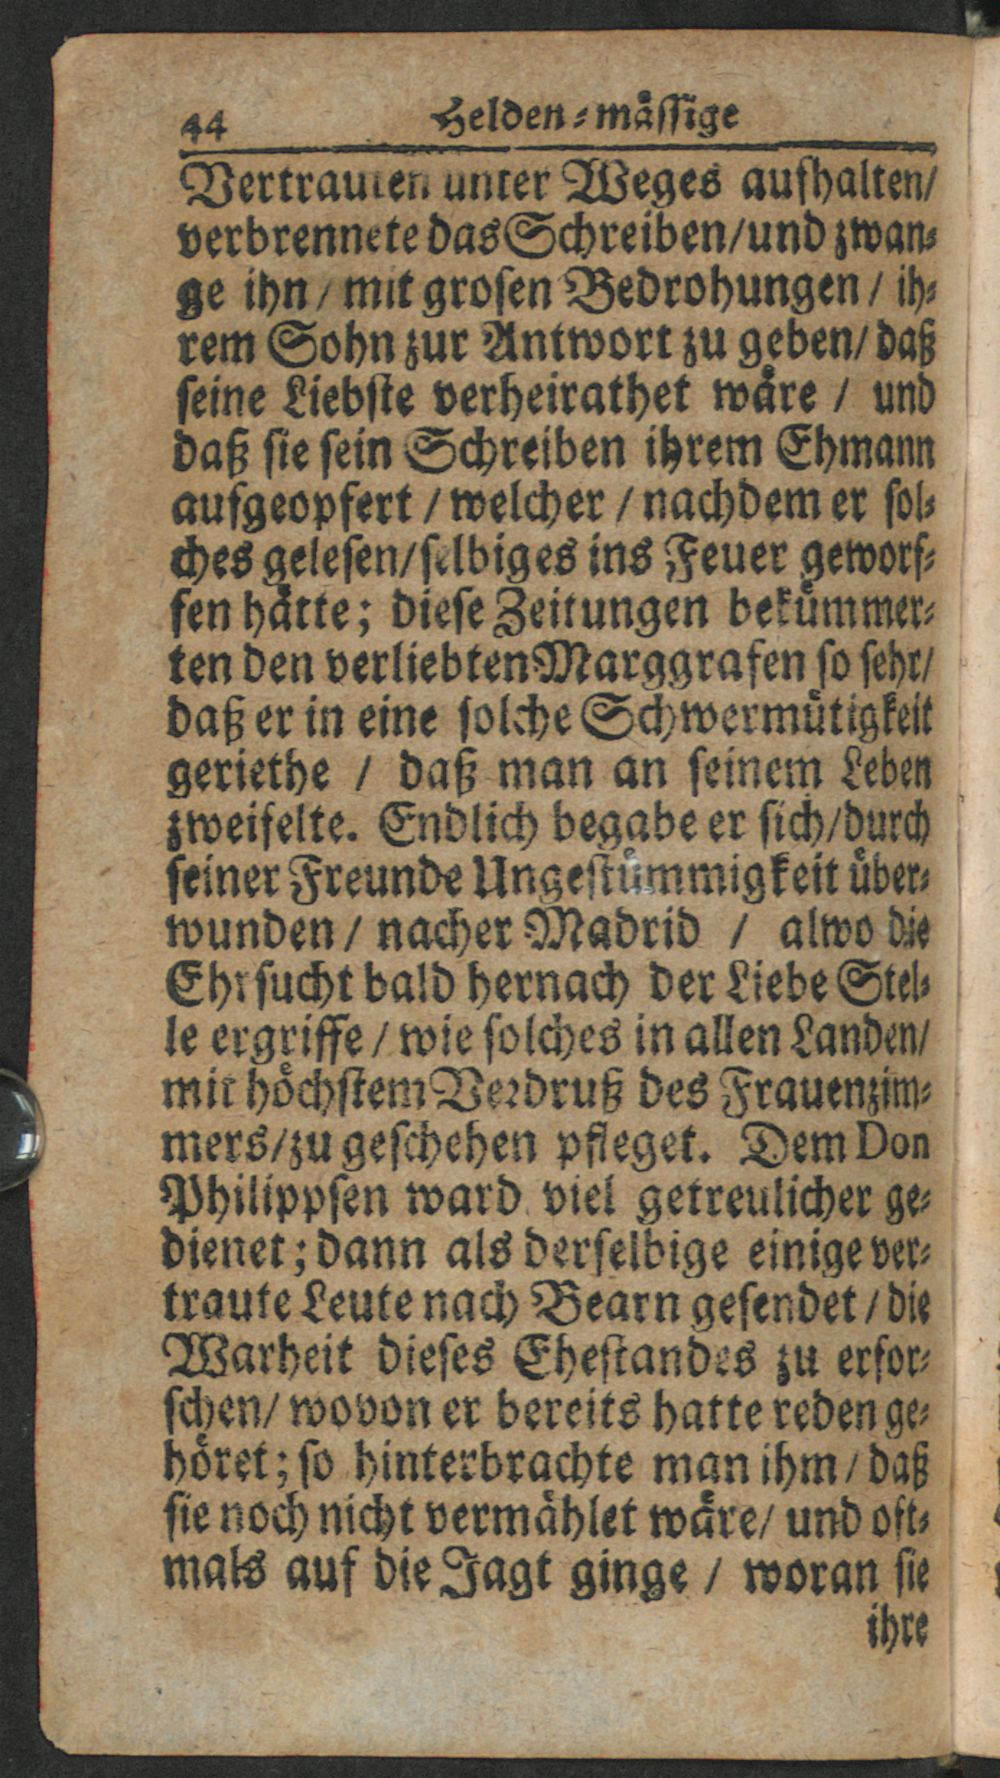 44 Helden-mässige
Vertrauten unter Weges aufhalten/
verbrennete das Schreiben/und zwan-
ge ihn/ mit grosen Bedrohungen / ih-
rem Sohn zur Antwort zu geben/ daß
seine Liebste verheirathet wäre / und
daß sie sein Schreiben ihrem Ehmann
aufgeopfert / welcher / nachdem er sol-
ches gelesen/selbiges ins Feuer geworf-
fen hätte; diese Zeitungen bekümmer-
ten den verliebten Marggrafen so sehr/
daß er in eine solche Schwermütigkeit
geriethe / daß man an seinem Leben
zweifelte. Endlich begabe er sich/durch
seiner Freunde Ungestümmigkeit über-
wunden / nacher Madrid / alwo die
Ehrsucht bald hernach der Liebe Stel-
le ergriffe / wie solches in allen Landen/
mit höchstem Verdruß des Frauenzim-
mers/zu geschehen pfleget. Dem Don
Philippsen ward viel getreulicher ge-
dienet; dann als derselbige einige ver-
traute Leute nach Bearn gesendet / die
Warheit dieses Ehestandes zu erfor-
schen/ wovon er bereits hatte reden ge-
höret; so hinterbrachte man ihm / daß
sie noch nicht vermählet wäre/ und oft-
mals auf die Jagt ginge / woran sie
ihre